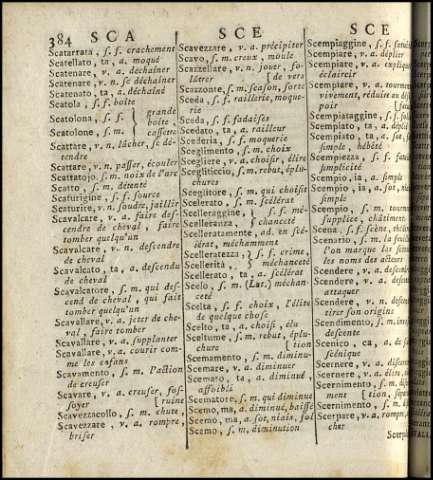 384 SCA SCE SCE
Scatarrata, s. f. crachement
Scatellato, ta, a. moqué
Scatenare, v. a. déchaîner
Scatenare, v. n. se déchaîner
Scatenato, ta, a. déchaîné
Scatola, s. f. boîte
Scatolona, s. f. } grande
boîte,
Scatolone, s. m. cassette
Scattare, v. n. lâcher, se dé-
tendre
Scattare, v. n. passer, écouler
Scattatojo, s. m. noix de l'arc
Scatto, s. m. détente
Scaturigine, s. f. source
Scaturire, v. n. soudre, jaillir
Scavalcare, v. a. faire des-
cendre de cheval, faire
tomber quelqu'un
Scavalcare, v. n. descendre
de cheval
Scavalcato, ta, a. descendu
de cheval
Scavalcatore, s. m. qui des-
cend de cheval, qui fait
tomber quelqu'un
Scavallare, v. a. jeter de che-
val, faire tomber
Scavallare, v. a. supplanter
Scavallare, v. a. courir com-
me les enfans
Scavamento, s. m. l'action
de creuser
Scavare, v. a. creuser, fos-
soyer { ruine
Scavezzacollo, s. m. chute,
Scavezzare, v. a. rompre,
briser
Scavezzare, v. a. précipiter
Scavo, s. m. creux, moule
Scazzellare, v. n. jouer, fo-
lâtrer { de vers
Scazzonte, s. m. scason, sorte
Sceda, s. f. raillerie, moque-
rie
Sceda, s. f. fadaises
Scedato, ta, a. railleur
Scederia, s. f. moquerie
Sceglimento, s. m. choix
Scegliere, v. a. choisir, élire
Scegliticcio, s. m. rebut, éplu-
chures
Sceglitore, s. m. qui choisit
Scelerato, s. m. scélérat
Scelleraggine, } s. f. mé-
Scelleranza, chanceté
Scelleratamente, ad. en scé-
lérat, méchamment
Scelleratezza, } s. f. crime,
Scellerità, méchanceté
Scellerato, ta, a. scélérat
Scelo, s. m. (Lat.) méchan-
ceté
Scelta, s. f. choix, l'élite
de quelque chose
Scelto, ta, a. choisi, élu
Sceltume, s. m. rebut, éplu-
chure { tion
Scemamento, s. m. diminu-
Scemare, v. a. diminuer
Scemato, ta, a. diminué,
affoibli
Scematore, s. m. qui diminue
Scemo, ma, a. diminué, baissé
Scemo, ma, a. sot, niais, fol
Scemo, s. m. diminution
Scempiaggine, s. f.
Scempiare, v. a.
Scempiare, v. a. explique
éclaircir
Scempiare, v. a. tourmen
vivement, réduire au dése
poir
Scempiataggine, s. f.
Scempiato, ta, a.
Scempiato, ta, a. sot,
simple, hébété
Scempiezza, s. f.
simplicité
Scempio, ia, a. simple
Scempio, ia, a. sot,
simple
Scempio, s. m. tourment
supplice, châtiment
Scena, s. f. scène,
Scenario, s. m. la
l'on marque
les noms des acteurs
Scendere, v. n.
Scendere, v. a.
attaquer
Scendere, v. n.
tirer son origine
Scendimento, s. m.
descente
Scenico, ca, a. de
scénique
Scernere, v. a.
Scernere, v. a.
Scernimento, s. m.
ment
Scernimento, s. m.
Scerpare, v. a. rompre
cher